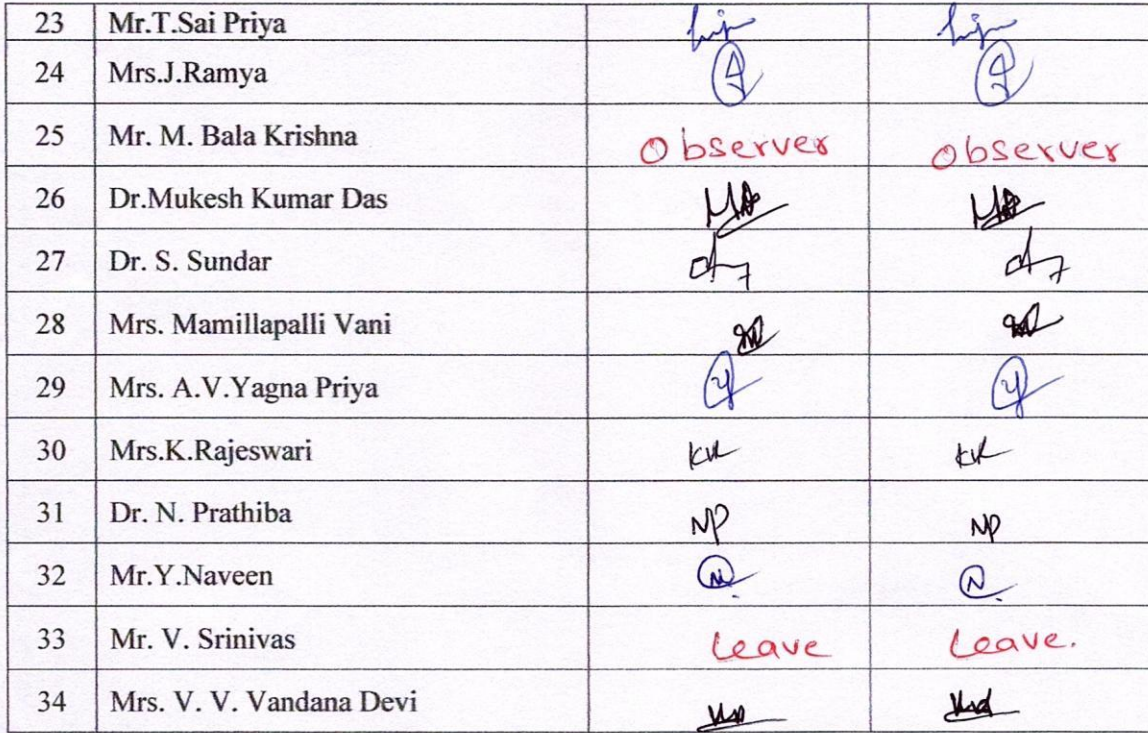 23 Mr.T.Sai Priya
24 Mrs.J.Ramya
25 Mr. M. Bala Krishna Observer Observer
26 Dr.Mukesh Kumar Das
27 Dr. S. Sundar
28 Mrs. Mamillapalli Vani
29 Mrs. A.V.Yagna Priya
30 Mrs.K.Rajeswari KR KR
31 Dr. N. Prathiba NP NP
32 Mr.Y.Naveen N. N.
33 Mr. V. Srinivas Leave Leave.
34 Mrs. V. V. Vandana Devi